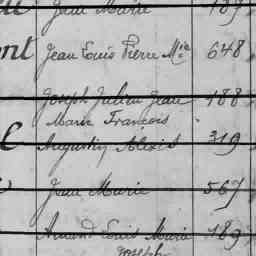 Jean Marie 187
nt Jean Louis Pierre Mie 648
Joseph Julien Jean 188
Marie François
Augustin Alexis 319
Jean Marie 567
Amand Louis Marie 189
Joseph